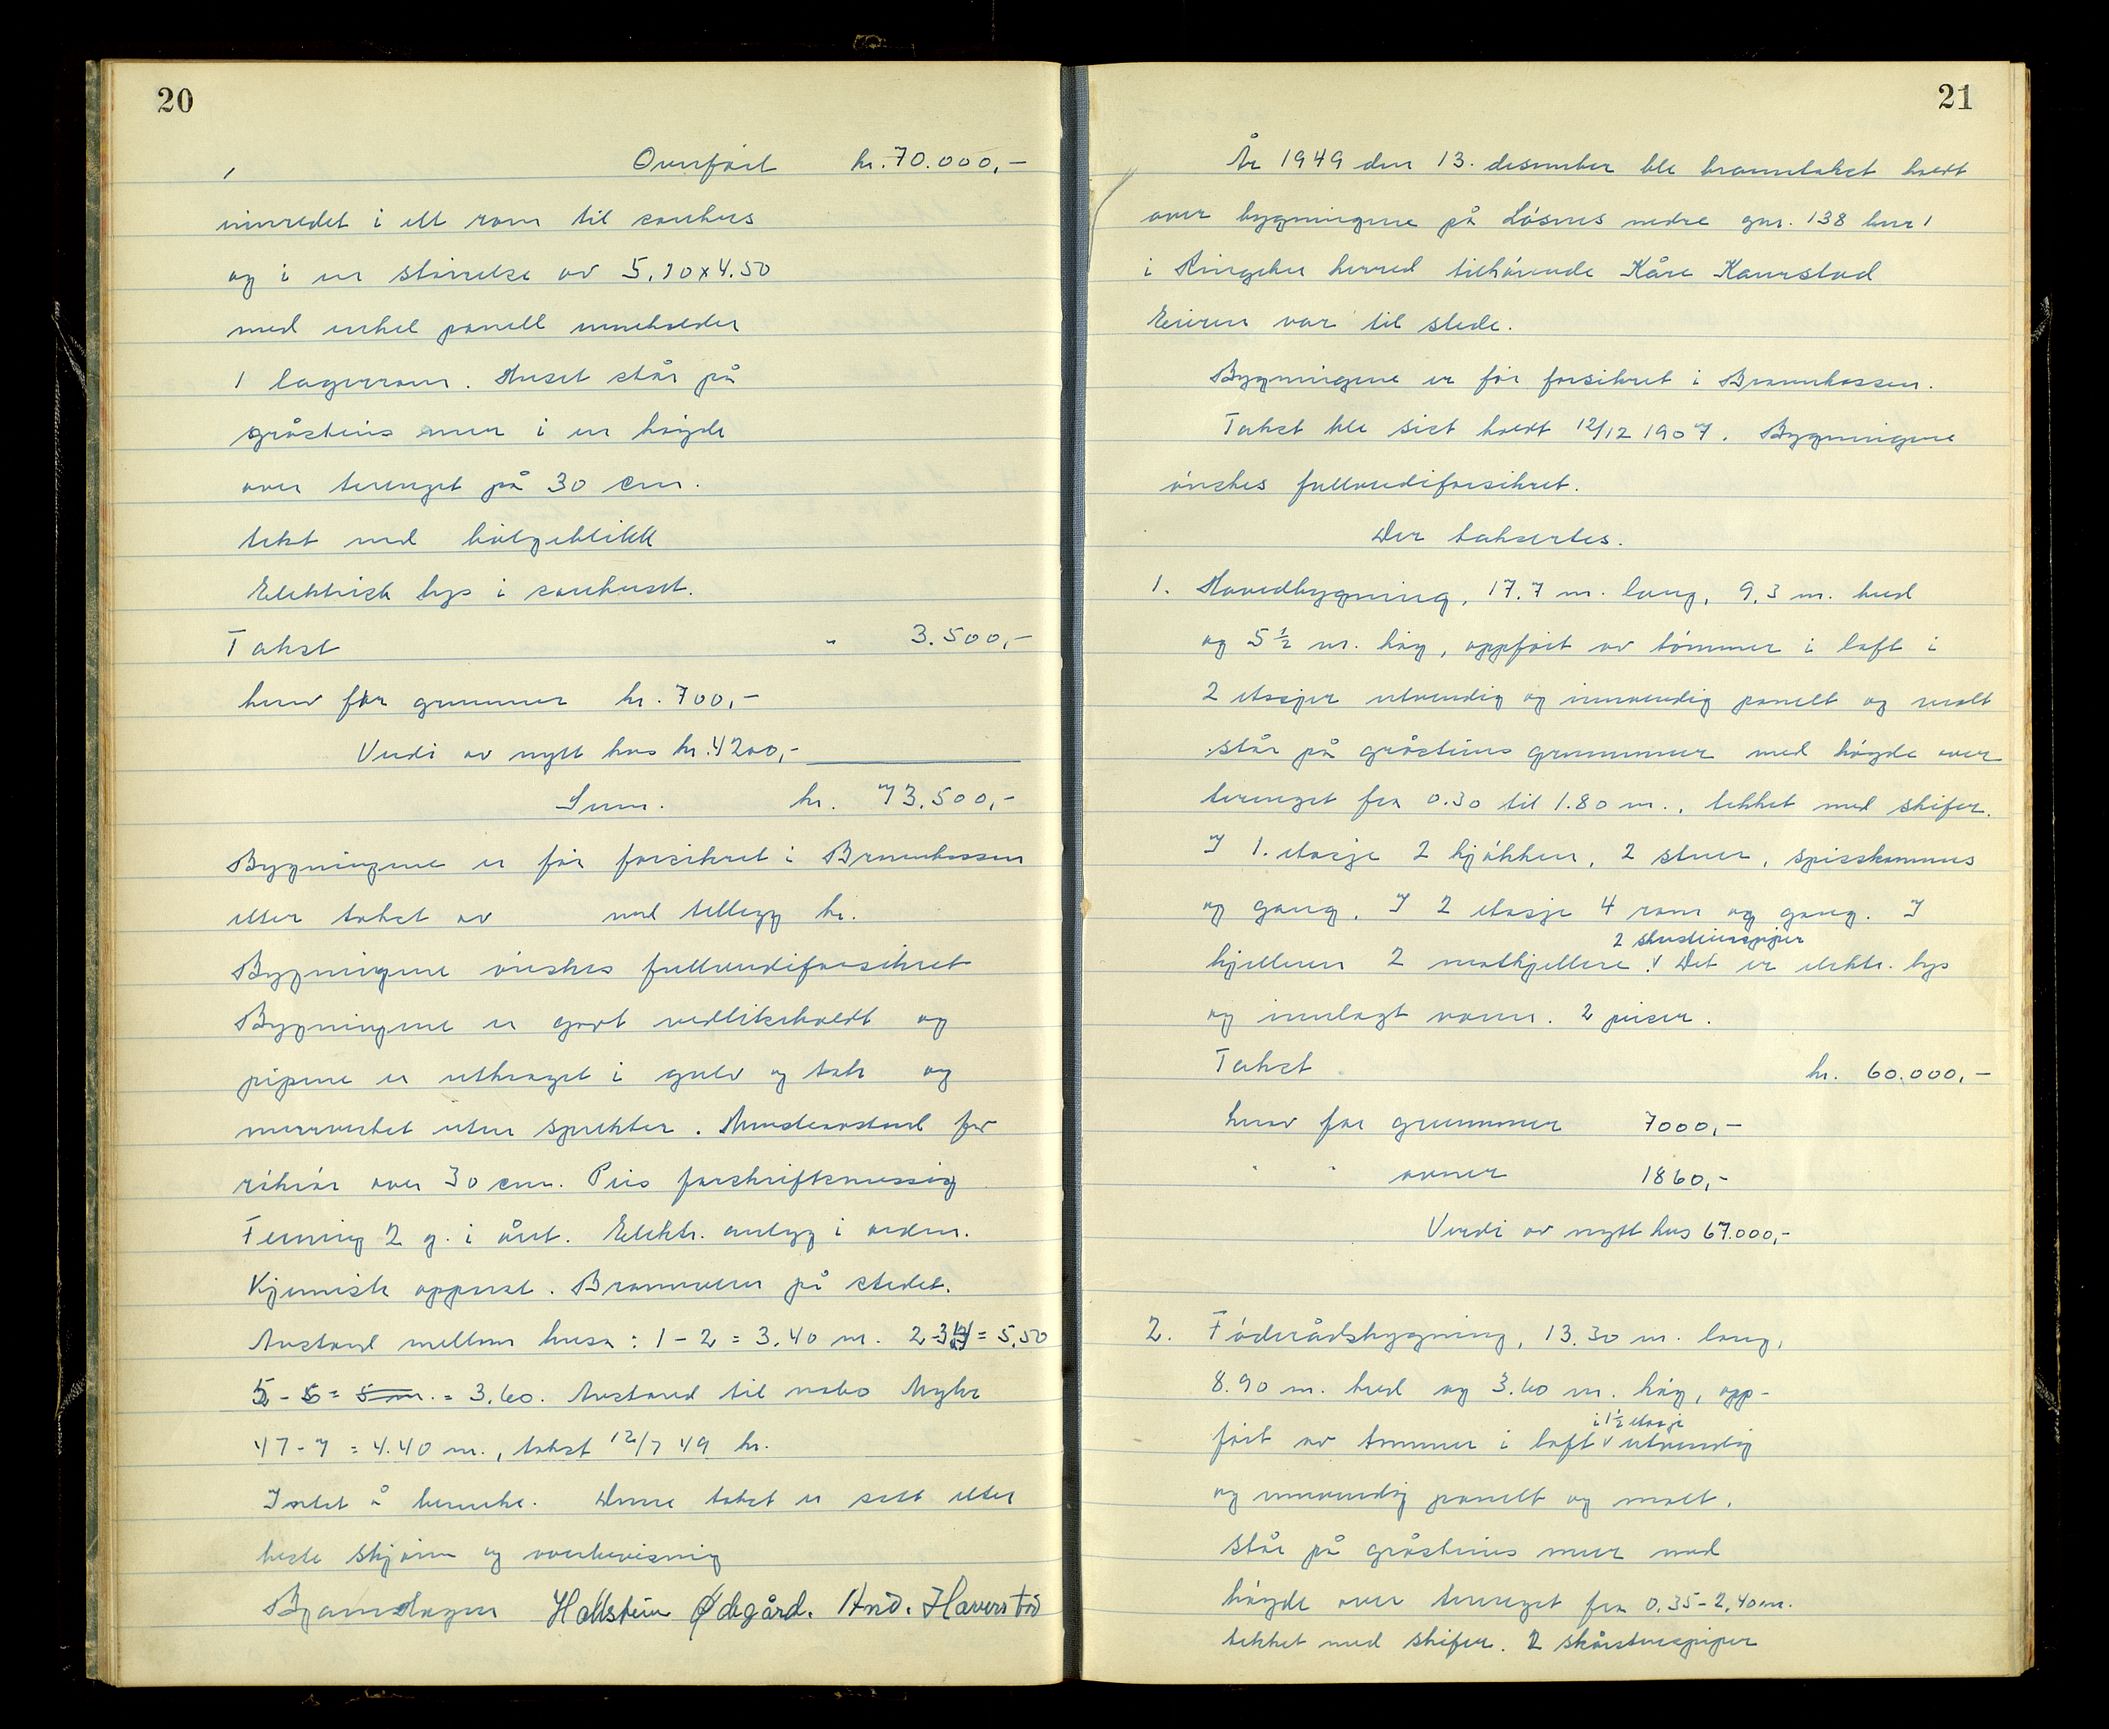 20
Overført kr. 70.000,-
innredet i ett rom til sauhus
og i en størrelse av 5.70x4.50
med enkel panell inneholder
1 lagerrom. Huset står på
gråsteins mur i en høyde
over terenget på 30 cm.
tekt med bølgeblikk
Elektrisk lys i sauhuset.
Takst " 3.500,-
herav for grunmur kr. 700,-
Verdi av nytt hus kr. 4200,-
Sum. kr. 73.500,-
Bygningene er før forsikret i Brannkassen
etter takst av med tillegg kr.
Bygningene ønskes fullverdiforsikret
Bygningene er godt vedlikeholdt og
pipene er utkraget i gulv og tak og
murverket uten sprekker. Mindeavstand for
rökrör over 30 cm. Pris forskriftsmessig
Feiing 2 g. i året. Elektr. anlegg i orden.
Kjemisk apparat. Brannvern på stedet.
Avstand mellom husa: 1-2 = 3.40 m. = 5.50
5-6 = 5 m. = 3,60. Avstand til nabo Myhr
47-7 = 4.40 m., takst 12/7 49 kr.
Intet å bemerke. Denne takst er satt etter
beste skjønn og overbevisning
Hallstein Ødegård. And. Haverstad
21
År 1949 den 13. desember ble branntakst holdt
over bygningene på Løsnes nedre gnr. 138 bnr 1
i Ringebu herred tilhørende Kåre Kaurstad
Eieren var til stede.
Bygningene er før forsikret i Brannkassen.
Takst ble sist holdt 12/12 1907. Bygningene
ønskes fullverdiforsikret.
Der taksertes.
1. Hovedbygning, 17.7 m. lang, 9,3 m. bred
og 5 1/2 m. høg, oppført av tømmer i laft i
2 etasjer utvendig og innvendig panelt og malt
står på gråsteins grunnmur med høyde over
terenget fra 0.30 til 1.80 m., tekket med skifer.
I 1. etasje 2 kjøkken, 2 stuer, spisskammers
og gang. I 2 etasje 4 rom og gang. I
2 skorsteinspiper
kjelleren 2 matkjellere. v Det er elektr. lys
og innlagt vann. 2 peiser.
Takst kr. 60.000,-
herav for grunnmur 7000,-
" " ovner 1860,-
Verdi av nytt hus 67.000,-
2. Föderådsbygning, 13.30 m. lang,
8.90 m. bred og 3.60 m. høg, opp-
i 1 1/2 etasje
ført av tømmer i laft v utvendig
og innvendig panelt og malt.
står på gråsteins mur med
høyde over terenget fra 0,35-2,40 m.
tekket med skifer. 2 skårsteinspiper